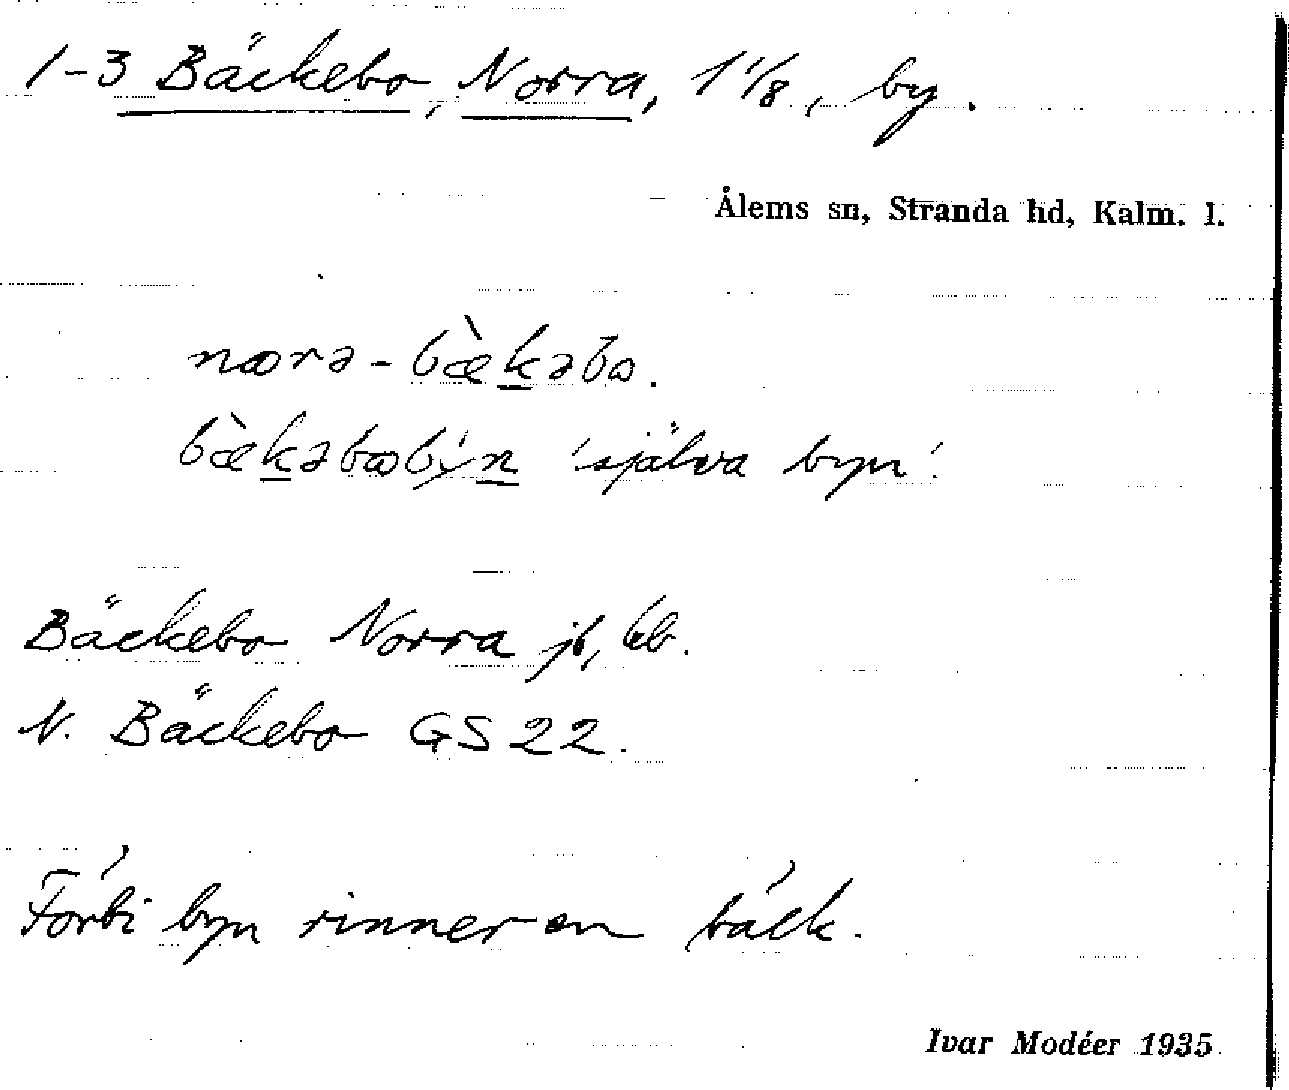 1-3 Bäckebo, Norra, 1 1/8, by.
Ålems sn, Stranda hd, Kalm. l.
nœrə-bæ̀kəbo.
bæ̀kəbœbýn 'själva byn'.
Bäckebo Norra jb, kb.
N. Bäckebo GS 22.
Förbi byn rinner en bäck.
Ivar Modéer 1935